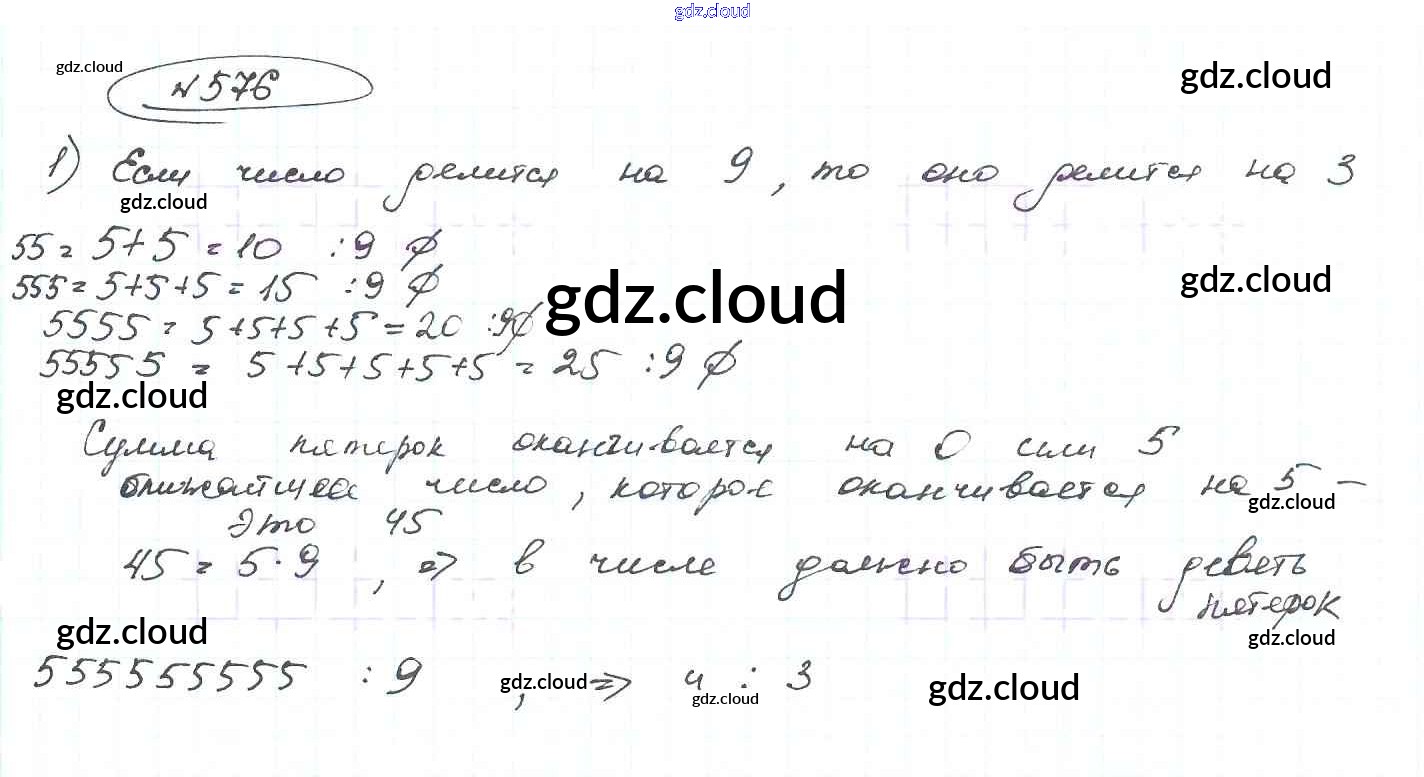 gdz.cloud
gdz.cloud
gdz.cloud
№576
1) Если число делится на 9, то оно делится на 3
gdz.cloud
55 = 5+5 = 10 :9 ∅
555 = 5+5+5 = 15 :9 ∅
gdz.cloud
gdz.cloud
5555 = 5+5+5+5 = 20 :9∅
55555 = 5+5+5+5+5 = 25 :9 ∅
gdz.cloud
Сумма пятерок оканчивается на 0 или 5
ближайшее число, которое оканчивается на 5 –
gdz.cloud
это 45
45 = 5·9, => в числе должно быть девять
пятерок
gdz.cloud
gdz.cloud
555555555 :9, => и : 3
gdz.cloud
gdz.cloud
gdz.cloud